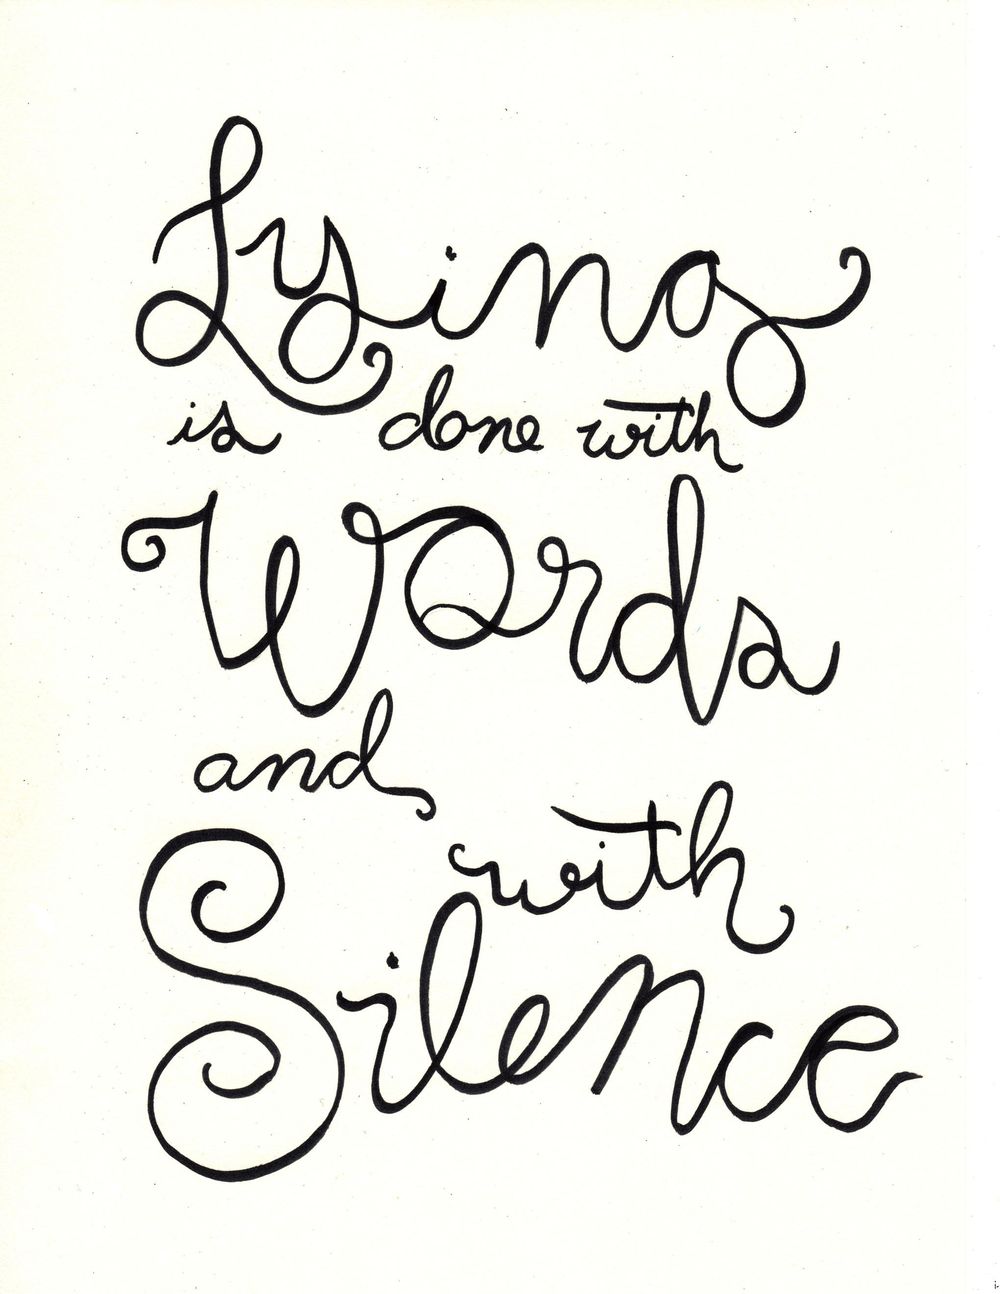 Lying
is done with
Words
and
with
Silence